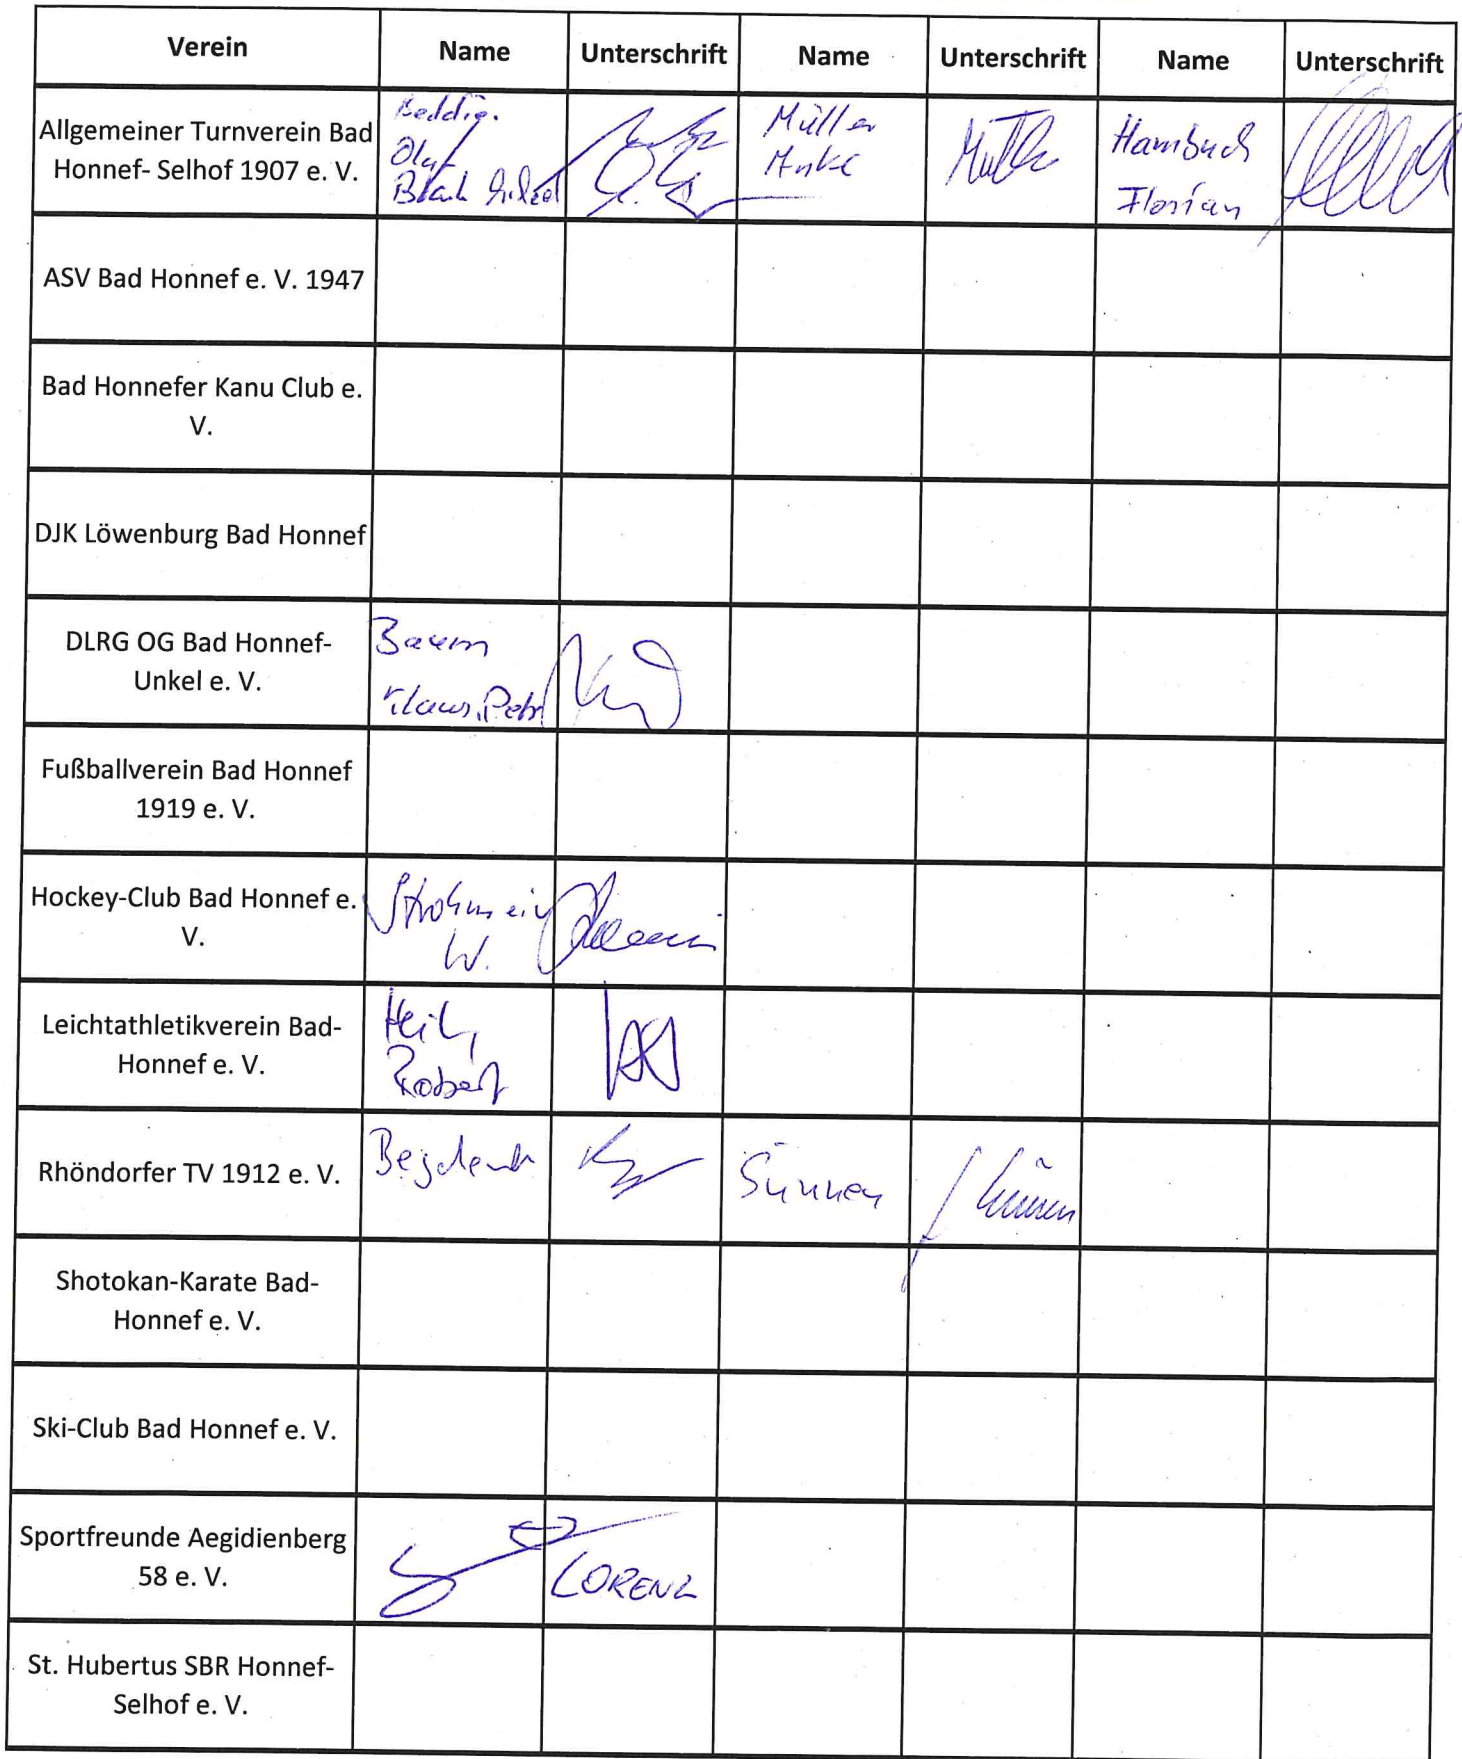 Verein Name Unterschrift Name Unterschrift Name Unterschrift
Allgemeiner Turnverein Bad
Honnef- Selhof 1907 e. V.
Olaf
Müller
Anke
Hambuch
Florian
ASV Bad Honnef e. V. 1947
Bad Honnefer Kanu Club e.
V.
DJK Löwenburg Bad Honnef
DLRG OG Bad Honnef-
Unkel e. V.
Baum
Klaus, Peter
Fußballverein Bad Honnef
1919 e. V.
Hockey-Club Bad Honnef e.
V.
W.
Leichtathletikverein Bad-
Honnef e. V.
Heil,
Robert
Rhöndorfer TV 1912 e. V.
Sünnen
Shotokan-Karate Bad-
Honnef e. V.
Ski-Club Bad Honnef e. V.
Sportfreunde Aegidienberg
58 e. V.
LORENZ
St. Hubertus SBR Honnef-
Selhof e. V.